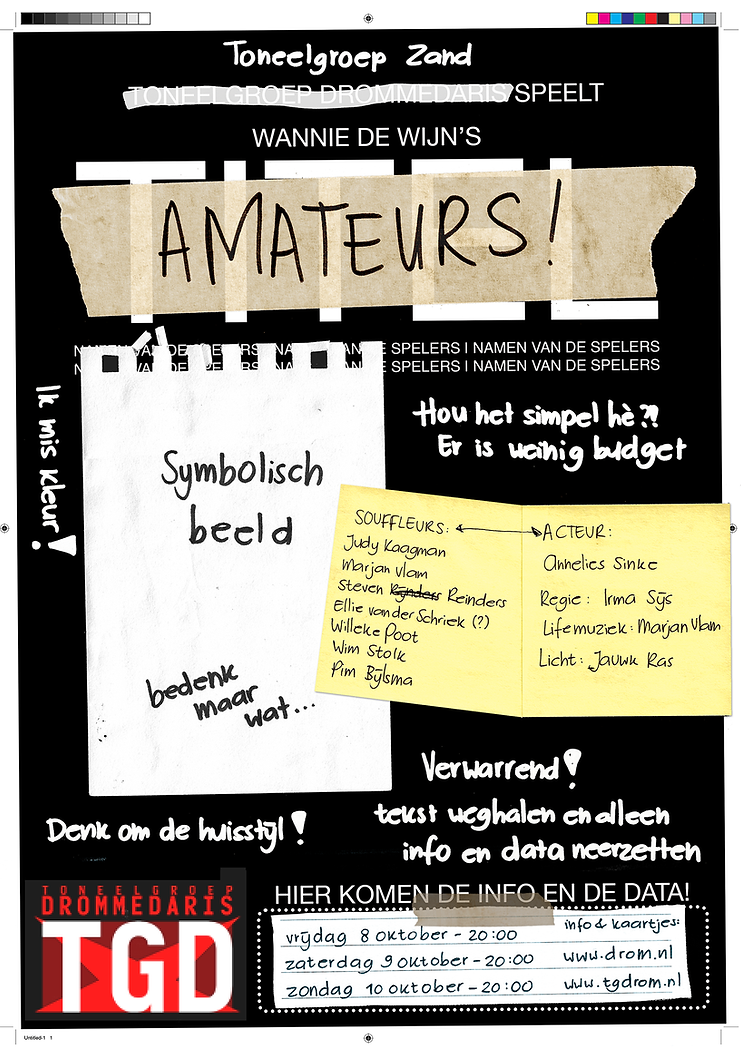 Toneelgroep Zand
TONEELGROEP DROMMEDARIS SPEELT
WANNIE DE WIJN'S
TITEL
AMATEURS!
NAMEN VAN DE SPELERS I NAMEN VAN DE SPELERS I NAMEN VAN DE SPELERS
NAMEN VAN DE SPELERS I NAMEN VAN DE SPELERS I NAMEN VAN DE SPELERS
Ik mis kleur!
Hou het simpel hè?!
Er is weinig budget
Symbolisch
beeld
bedenk
maar
wat...
SOUFFLEURS:
Judy Kaagman
Marjan Vlam
Steven Rijnders Reinders
Ellie van der Schriek (?)
Willeke Poot
Wim Stolk
Pim Bijlsma
ACTEUR:
Annelies Sinke
Regie: Irma Sijs
Lifemuziek: Marjan Vlam
Licht: Jauwk Ras
Verwarrend!
tekst weghalen en alleen
info en data neerzetten
Denk om de huisstijl!
TONEELGROEP
DROMMEDARIS
TGD
HIER KOMEN DE INFO EN DE DATA!
vrijdag 8 oktober - 20:00
zaterdag 9 oktober - 20:00
zondag 10 oktober - 20:00
info & kaartjes:
www.drom.nl
www.tgdrom.nl
Untitled-1 1